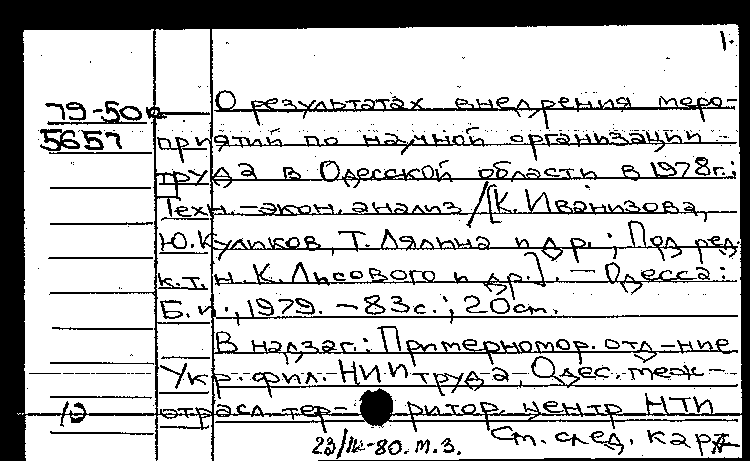 1.
79-50п О результатах внедрения меро-
5657 приятий по научной организации
труда в Одесской области в 1978г.;
Техн.-экон. анализ /[К. Иванизова,
Ю. Куликов, Т. Лялина и др.; Под ред.
к.т.н. К. Лисового и др.]. - Одесса:
Б.и., 1979. - 83с.; 20см.
В надзаг.: Примерномор. отд-ние
Укр. фил. НИИ труда, Одес. меж-
10 отрасл. тер- ритор. центр НТИ
23/IV-80. м.з. См. след. карт